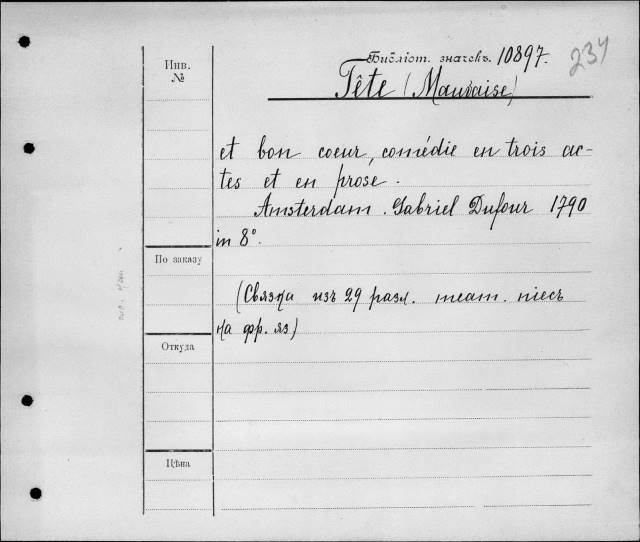 Инв.
№
Библіот. значекъ. 10897.
234
Tête (Mauvaise)
et bon coeur, comédie en trois ac-
tes et en prose.
Amsterdam. Gabriel Dufour 1790
in 8°.
По заказу
(Связка изъ 29 разл. театр. піесъ
на фр. яз)
Откуда
Цѣна